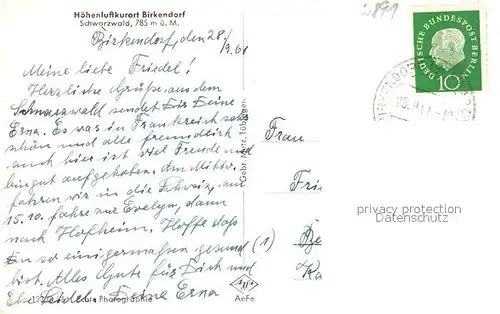 2899
Höhenluftkurort Birkendorf
Schwarzwald, 785 m ü. M.
Birkendorf, den 28./9.61
Meine liebe Friedel!
Herzliche Grüße aus dem
Schwarzwald sendet Dir Deine
Erna. Es war in Frankreich sehr
schön und alle freundlich
auch hier ist viel Freude und
bin gut aufgehoben. Am Mittw.
fahren wir in die Schweiz, am
15.10. fahre zur Evelyn, dann
nach Hofheim. Hoffe daß
Du so einigermaßen gesund
bist. Alles Gute für Dich und
Deine Erna
Photographie
Gebr. Metz, Tübingen
AeFe
DEUTSCHE BUNDESPOST BERLIN
10
Frau
(1)
privacy protection
Datenschutz